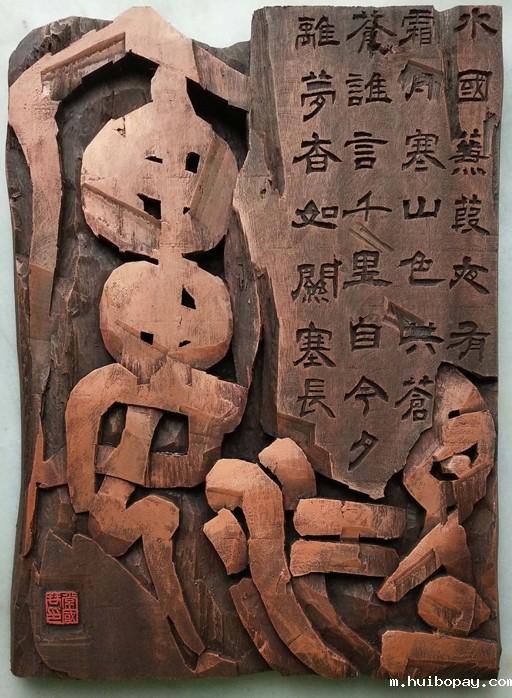 水國蒹葭夜有
霜寒山色共蒼
蒼誰言千里自今夕
離夢杳如關塞長
m.huibopay.com